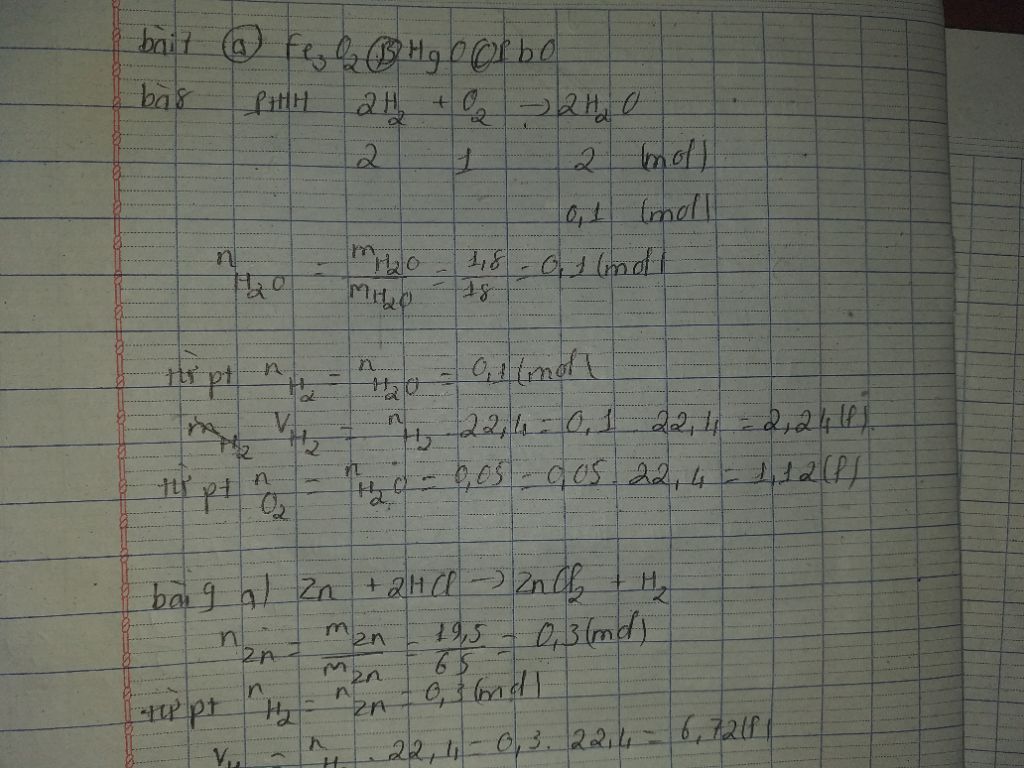 bài 7 (a) Fe3O2 (B) HgO (C) PbO
bài 8 PTHH 2H2 + O2 -> 2H2O
2 1 2 (mol)
0,1 (mol)
nH2O = mH2O/mH2O = 1,8/18 = 0,1 (mol)
Từ pt nH2 = nH2O = 0,1 (mol)
mH2 VH2 = nH2 . 22,4 = 0,1 . 22,4 = 2,24 (l)
Từ pt nO2 = nH2O = 0,05 = 0,05 . 22,4 = 1,12 (l)
bài 9 a) Zn + 2HCl -> ZnCl2 + H2
nZn = mZn/mZn = 19,5/65 = 0,3 (mol)
Từ pt nH2 = nZn = 0,3 (mol)
VH = nH . 22,4 = 0,3 . 22,4 = 6,72 (l)